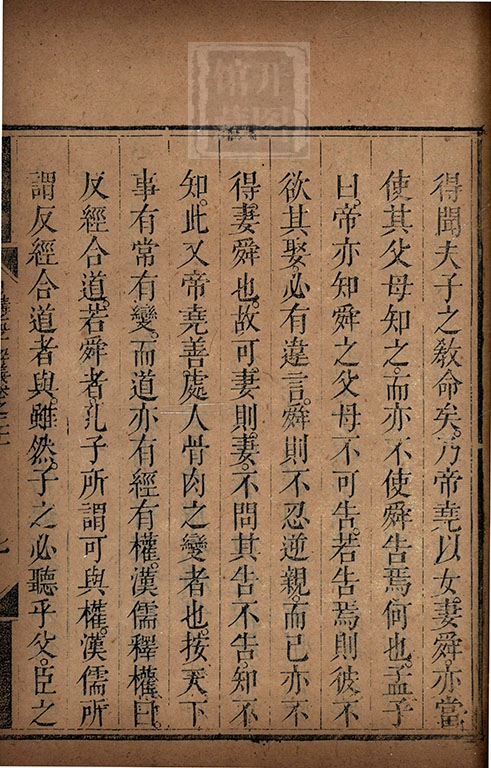 得聞夫子之教命矣。乃帝堯以女妻舜。亦當
使其父母知之。而亦不使舜告焉。何也。孟子
曰。帝亦知舜之父母不可告。若告焉。則彼不
欲其娶。必有違言。舜則不忍逆親。而已亦不
得。妻舜也。故可妻則妻。不問其告不告。知不
知。此又帝堯善處人骨肉之變者也。按天下
事有常有變。而道亦有經有權。漢儒釋權。曰。
反經合道。若舜者。孔子所謂可與權。漢儒所
謂反經合道者與。雖然。子之必聽乎父。臣之